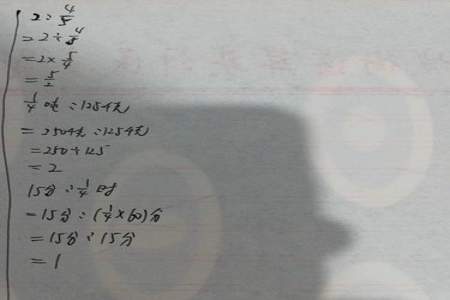 2:4/5
=2÷4/5
=2×5/4
=5/2
1/4吨:125千克
=250千克:125千克
=250÷125
=2
15分:1/4时
=15分:(1/4×60)分
=15分:15分
=1